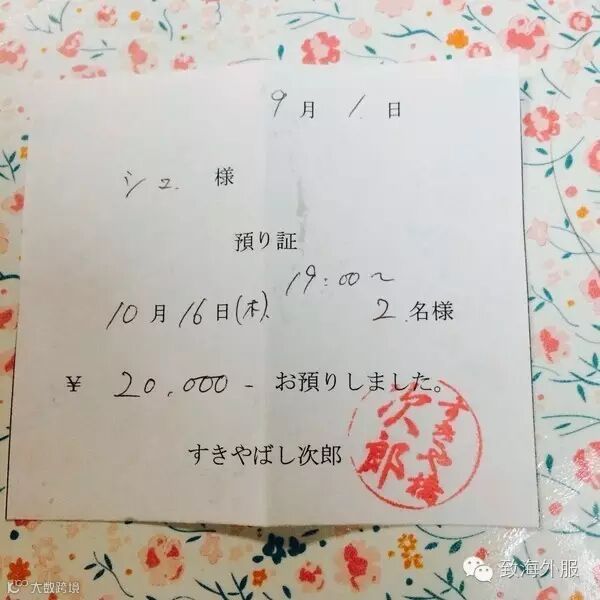 9月1.日
シュ 様
預り証
19:00〜
10月16日(木) 2.名様
¥ 20.000- お預りしました。
すきやばし次郎
すきや橋
次郎
大数跨境
致海外服